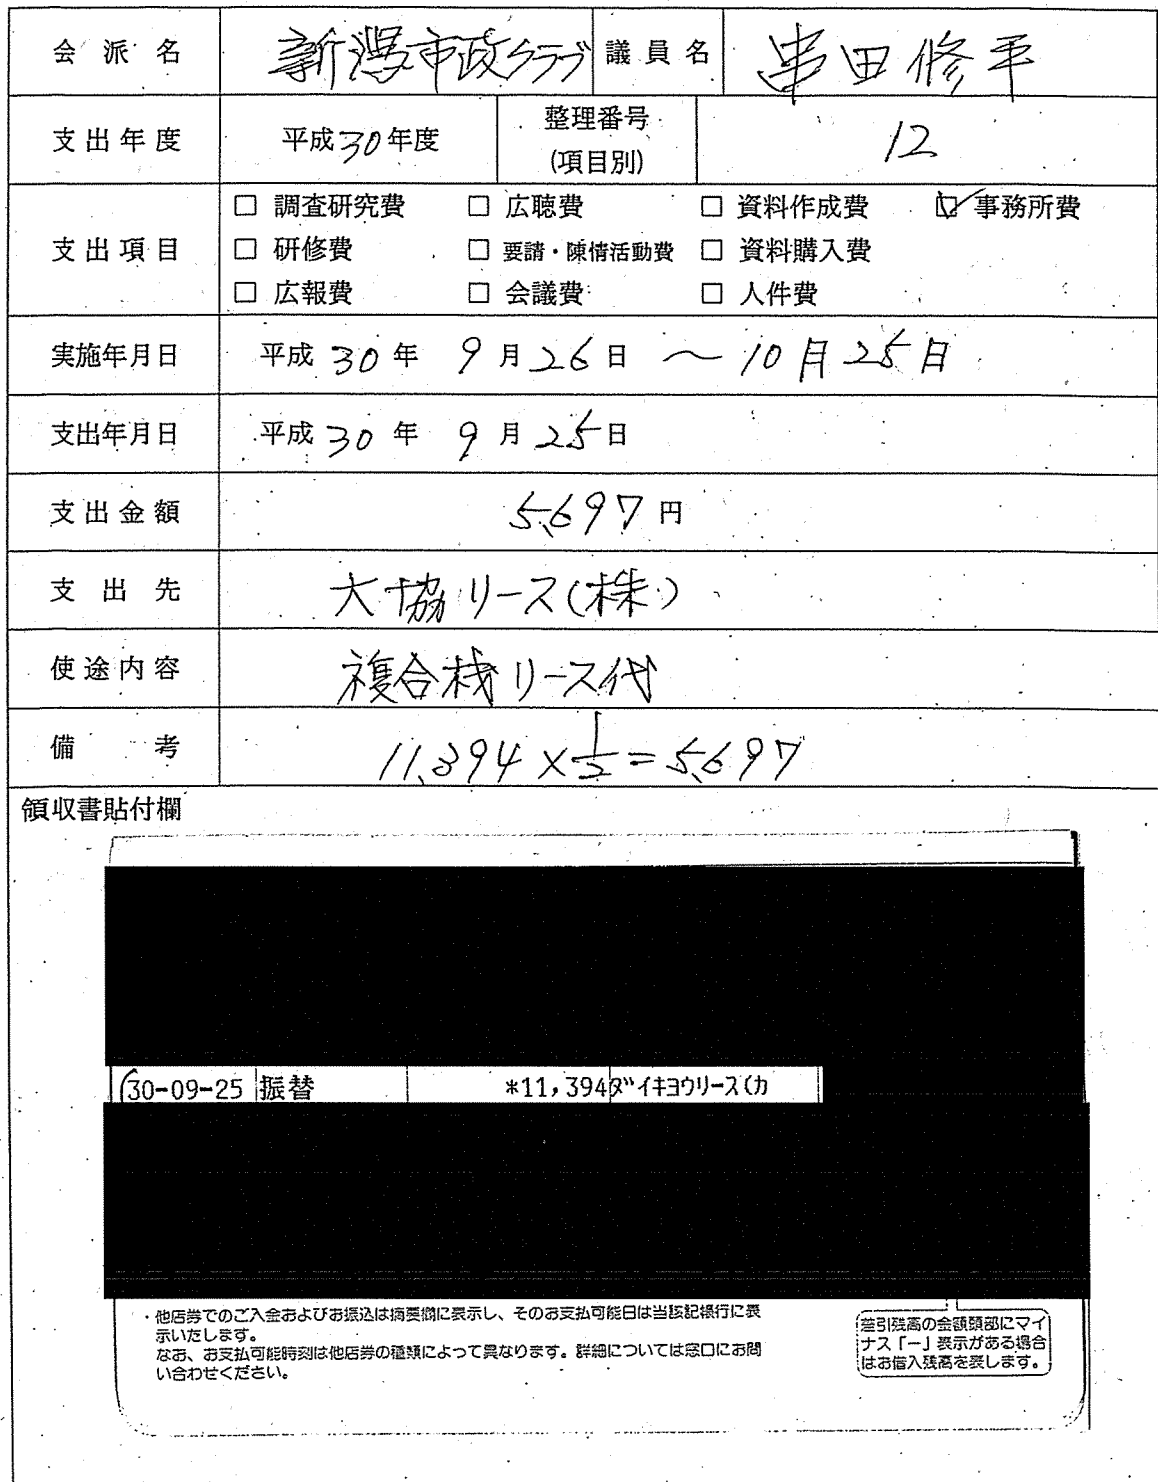 会派名 新潟市政クラブ 議員名 串田修平
支出年度 平成30年度 整理番号(項目別) 12
支出項目
□ 調査研究費 □ 広聴費 □ 資料作成費 ☑ 事務所費
□ 研修費 □ 要請・陳情活動費 □ 資料購入費
□ 広報費 □ 会議費 □ 人件費
実施年月日 平成30年 9月26日 ～10月25日
支出年月日 平成30年 9月25日
支出金額 5,697円
支出先 大協リース(株)
使途内容 複合機リース代
備考 11,394×1/2=5,697
領収書貼付欄
30-09-25 振替 *11,394 ダイキヨウリース(カ
・他店券でのご入金およびお振込は摘要欄に表示し、そのお支払可能日は当該記帳行に表
示いたします。
なお、お支払可能時刻は他店券の種類によって異なります。詳細については窓口にお問
い合わせください。
差引残高の金額頭部にマイ
ナス「ー」表示がある場合
はお借入残高を表します。